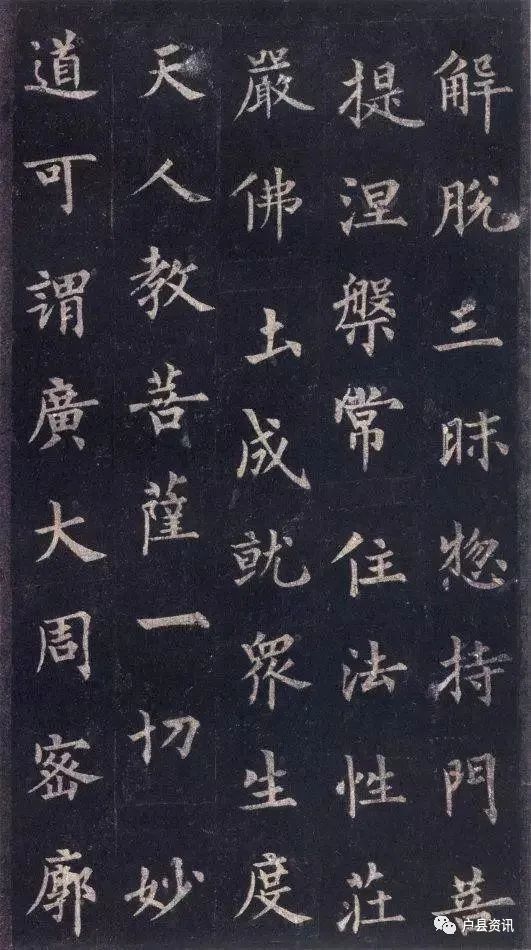 解脫三昧惣持門菩
提涅槃常住法性莊
嚴佛土成就眾生度
天人教菩薩一切妙
道可謂廣大周密廓
户县资讯